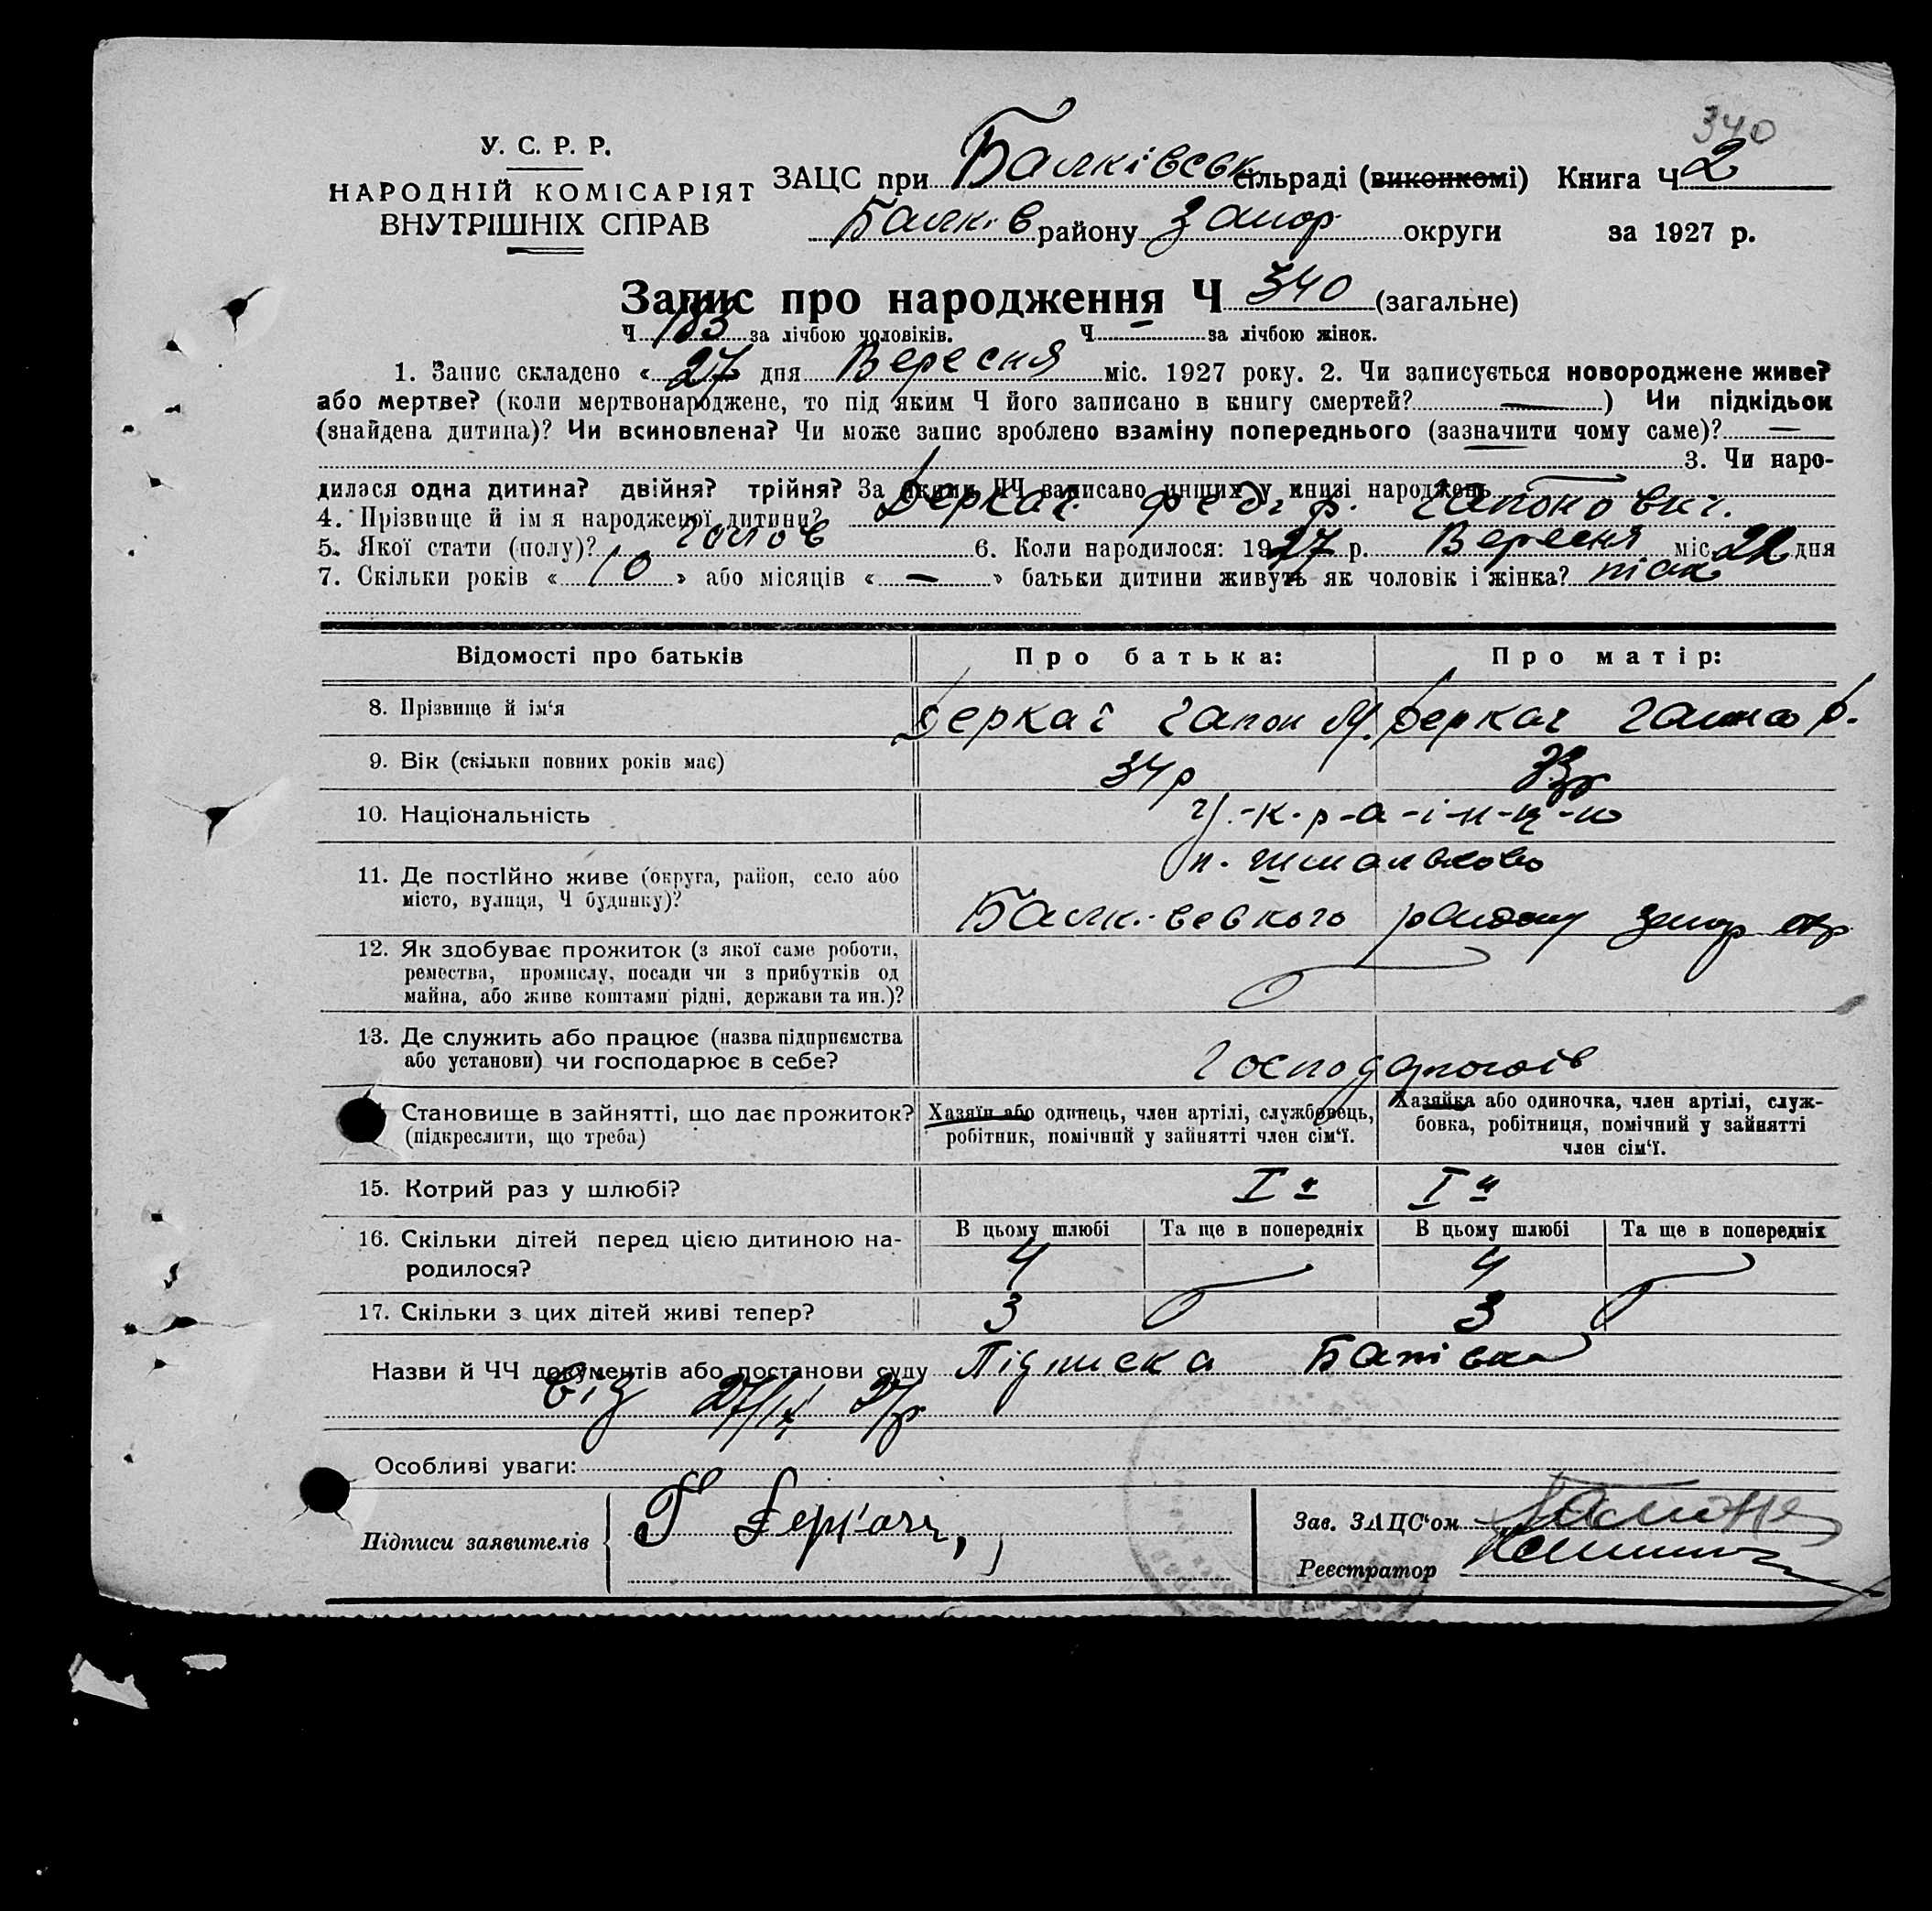 340
У. С. Р. Р.
НАРОДНІЙ КОМІСАРІЯТ
ВНУТРІШНІХ СПРАВ
ЗАЦС при Балківськ сільраді (виконкомі) Книга Ч 2
Балків району Запор округи за 1927 р.
Запис про народження Ч 340 (загальне)
Ч 183 за лічбою чоловіків. Ч — за лічбою жінок.
1. Запис складено « 27 » дня Вересня міс. 1927 року. 2. Чи записується новороджене живе?
або мертве? (коли мертвонароджене, то під яким Ч його записано в книгу смертей? — ) Чи підкідьок
(знайдена дитина)? Чи всиновлена? Чи може запис зроблено взаміну попереднього (зазначити чому саме)? —
3. Чи наро-
дилася одна дитина? двійня? трійня? За якими ЧЧ записано инших у книзі народжень —
4. Прізвище й ім я народженої дитини? Деркач Федір Гапонович.
5. Якої стати (полу)? Чолов 6. Коли народилося: 1927 р. Вересня міс. 22 дня
7. Скільки років « 10 » або місяців « — » батьки дитини живуть як чоловік і жінка? так
Відомості про батьків Про батька: Про матір:
8. Прізвище й ім‘я Деркач Гапон М. Деркач Ганна
9. Вік (скільки повних років має) 34 р 33р
10. Національність У-к-р-а-ї-н-ц-і
11. Де постійно живе (округа, район, село або
місто, вулиця, Ч будинку)? Балківського району Запор окр
12. Як здобуває прожиток (з якої саме роботи,
ремества, промислу, посади чи з прибутків од
майна, або живе коштами рідні, держави та ин.)?
13. Де служить або працює (назва підприємства
або установи) чи господарює в себе?
Становище в зайнятті, що дає прожиток?
(підкреслити, що треба)
Хазяїн або одинець, член артілі, службовець,
робітник, помічний у зайнятті член сім‘ї.
Хазяйка або одиночка, член артілі, служ-
бовка, робітниця, помічний у зайнятті
член сім‘ї.
15. Котрий раз у шлюбі? I й I й
16. Скільки дітей перед цією дитиною на-
родилося?
В цьому шлюбі Та ще в попередніх В цьому шлюбі Та ще в попередніх
4 4
17. Скільки з цих дітей живі тепер? 3 3
Назви й ЧЧ документів або постанови суду Підписка Батька
від 27/IX 27р
Особливі уваги:
Підписи заявителів Г Деркач
Зав. ЗАЦС‘ом
Реєстратор